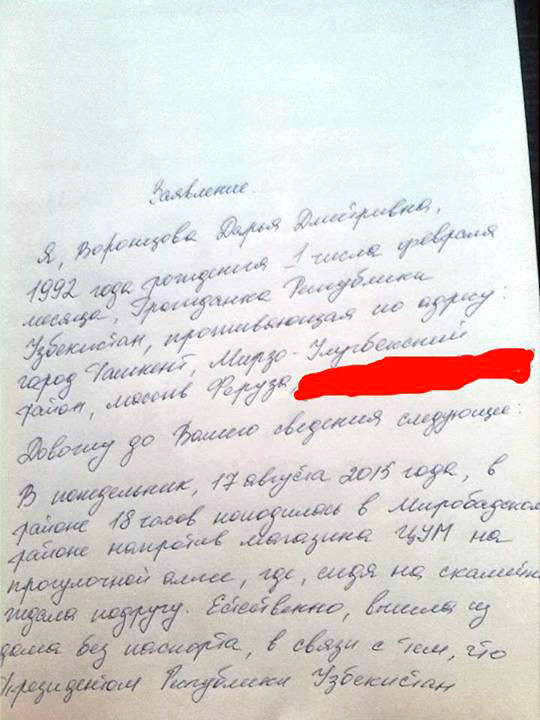 Заявление.
Я, Воронцова Дарья Дмитривна,
1992 года рождения 1 числа февраля
месяца, Гражданка Республики
Узбекистан, проживающая по адресу:
город Ташкент, Мирзо-Улугбекский
район, массив Феруза,
Довожу до Вашего сведения следующее:
В понедельник, 17 августа 2015 года, в
районе 18 часов находилась в Миробадском
районе напротив магазина ЦУМ на
прогулочной аллее, где, сидя на скамейке
ждала подругу. Естественно, вышла из
дома без паспорта, в связи с тем, что
Президентом Республики Узбекистан